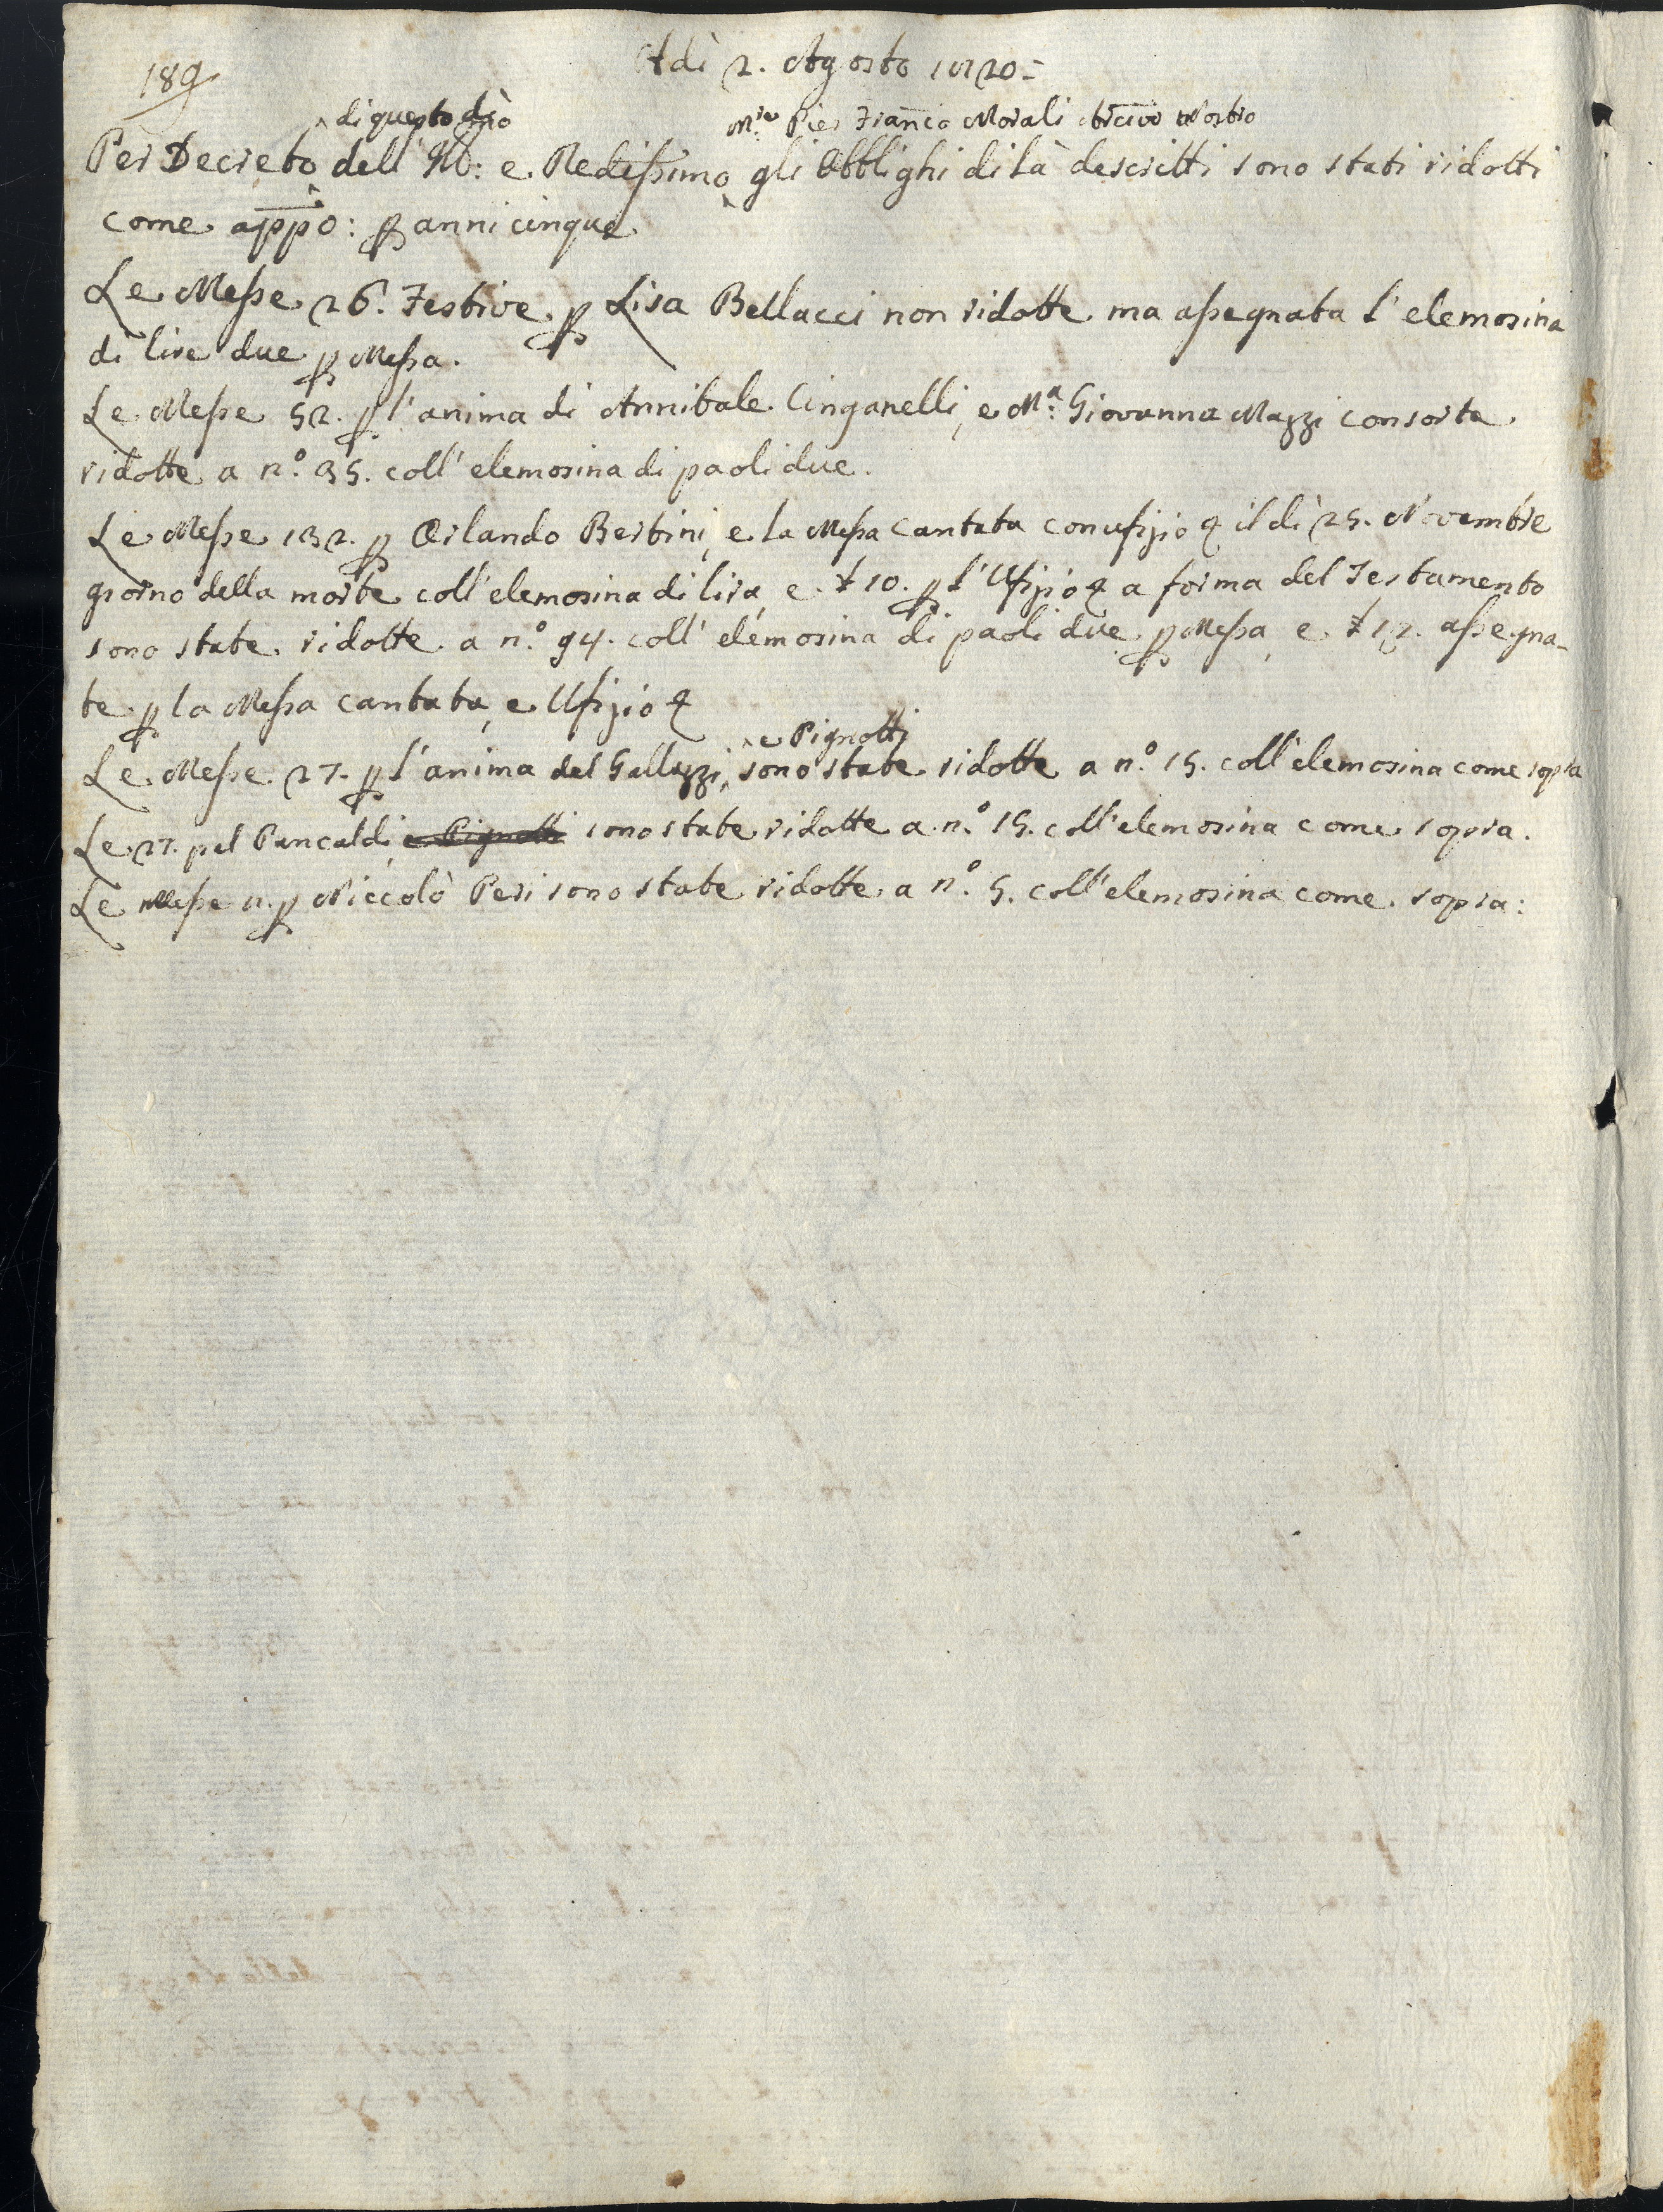 189
Adì 2. Agosto 1820=
di questo dì
M.re Pier Franco Morali Arcivo Nostro
Per Decreto dell' Ill: e Redissimo gli Obblighi di là descritti sono stati ridotti
come appo: p anni cinque
Le Messe 26. Festive p Lisa Bellacci non ridotte ma assegnata l'elemosina
di lire due p Messa.
Le Messe 52. p l'anima di Annibale Cinganelli, e M.a Giovanna Mazzi consorte
ridotte a n.o 35. coll' elemosina di paoli due.
Le Messe 132. p Orlando Bertini, e la Messa cantata con ufizio il dì 25. Novembre
giorno della morte coll' elemosina di lira, e £ 10. p l'Ufizio a forma del Testamento
sono state ridotte a n.o 94. coll' elemosina di paoli due p Messa, e £ 12. assegna-
te p la Messa cantata, e Ufizio
e Pignotti
Le Messe 27. p l'anima del Galluzzi, sono state ridotte a n.o 15. coll' elemosina come sopra
Le 27. pel Pancaldi, e Pignotti sono state ridotte a n.o 15. coll' elemosina come sopra.
Le Messe p Niccolò Peri sono state ridotte a n.o 5. coll' elemosina come sopra: